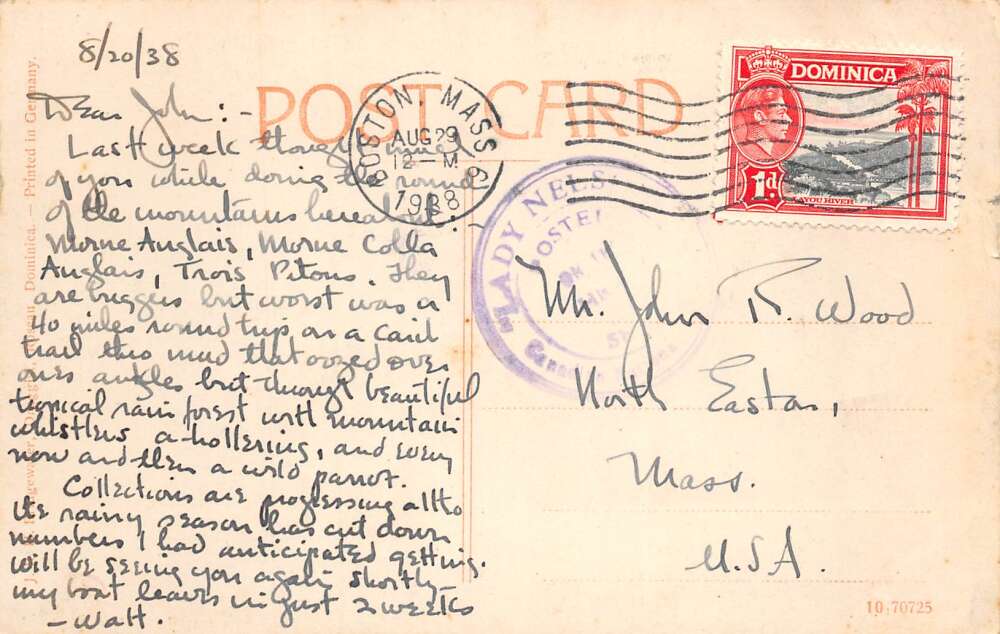 8/20/38
Dear John:-
Last week thought
of you while doing the round
of the mountains hereabout.
Morne Anglais, Morne Colla
Anglais, Trois Pitons. They
are buggers but worst was a
40 miles round trip on a Carib
trail thru mud that oozed over
ones ankles but through beautiful
tropical rain forest with mountain
whistlers a-hollering, and every
now and then a wild parrot.
Collections are progressing altho
the rainy season has cut down
numbers I had anticipated getting.
Will be seeing you again shortly -
my boat leaves in just 2 weeks
- Walt.
POST CARD
BOSTON, MASS
AUG 29
12-M
1938
LADY NELS
POSTED
DOMINICA
1d
LAYOU RIVER
Mr. John R. Wood
North Easton,
Mass.
U.S.A.
Dominica. — Printed in Germany.
10-70725